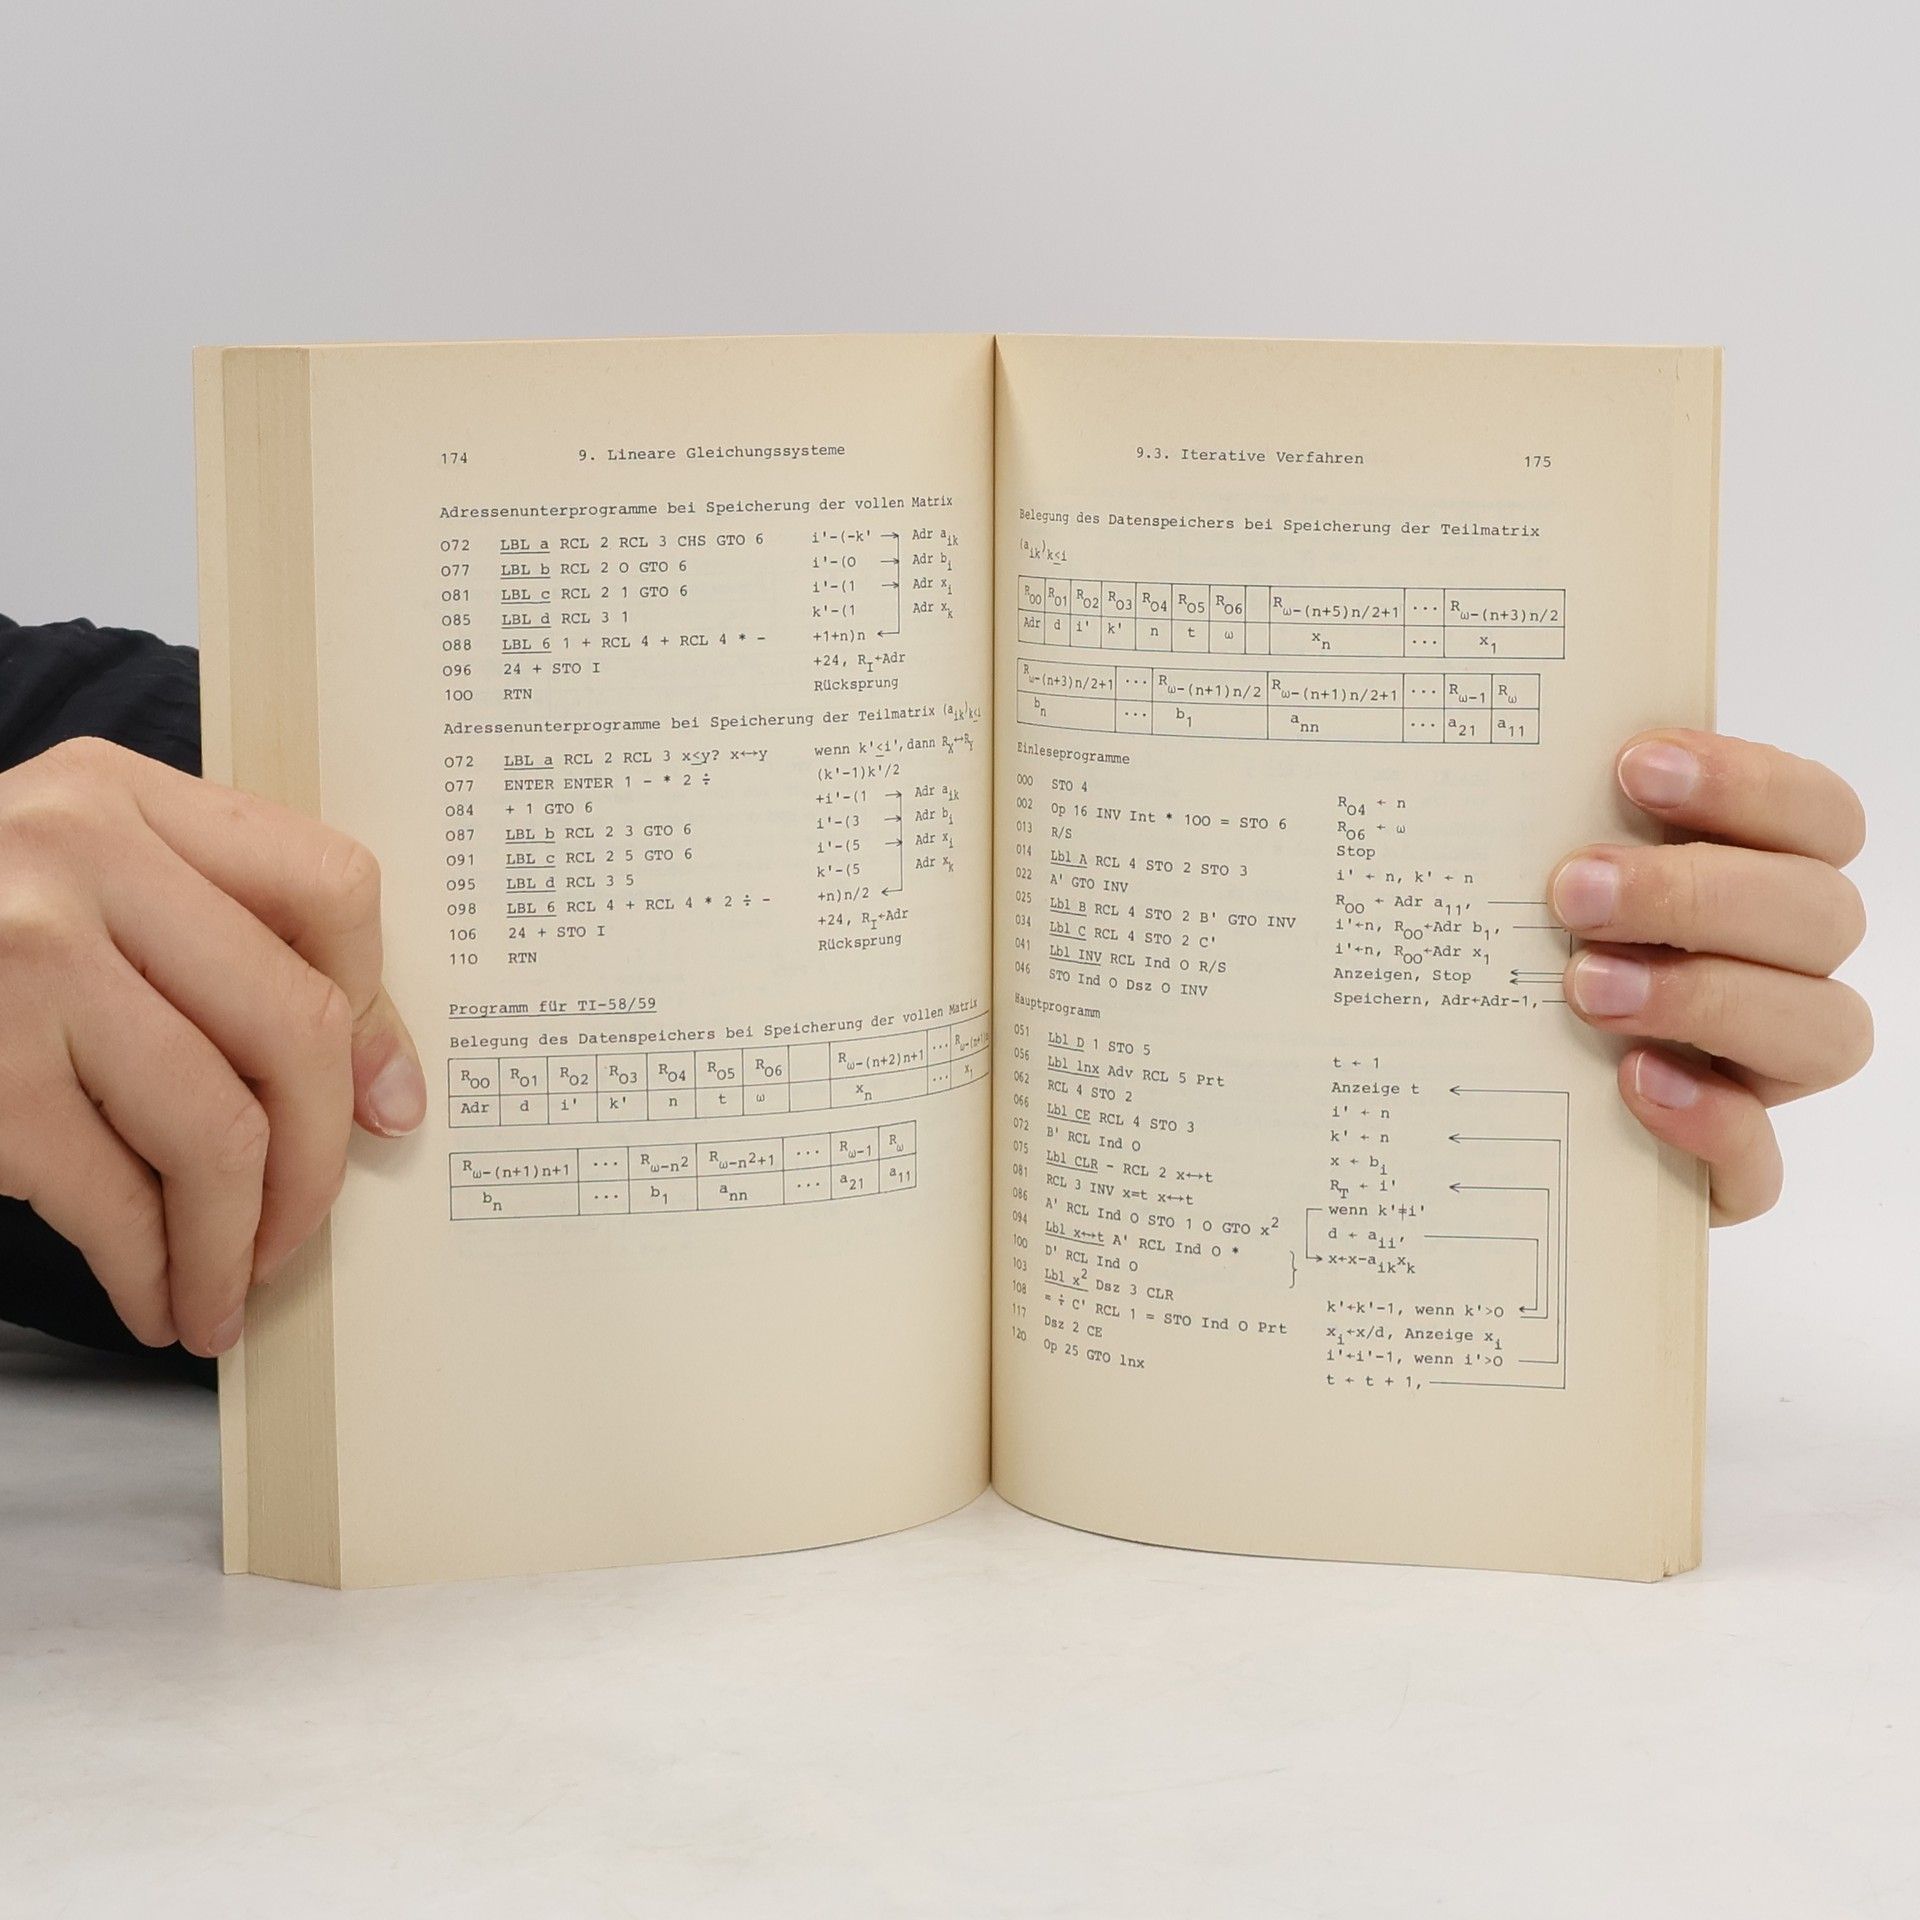 174 9. Lineare Gleichungssysteme
Adressenunterprogramme bei Speicherung der vollen Matrix
072 LBL a RCL 2 RCL 3 CHS GTO 6 i'-(-k' → Adr aik
077 LBL b RCL 2 0 GTO 6 i'-(0 → Adr bi
081 LBL c RCL 2 1 GTO 6 i'-(1 → Adr xi
085 LBL d RCL 3 1 k'-(1 Adr xk
088 LBL 6 1 + RCL 4 + RCL 4 * - +1+n)n ←
096 24 + STO I +24, RI←Adr
100 RTN Rücksprung
Adressenunterprogramme bei Speicherung der Teilmatrix (aik)k≤i
072 LBL a RCL 2 RCL 3 x≤y? x↔y wenn k'≤i', dann RX↔RY
077 ENTER ENTER 1 - * 2 ÷ (k'-1)k'/2
084 + 1 GTO 6 +i'-(1 → Adr aik
087 LBL b RCL 2 3 GTO 6 i'-(3 → Adr bi
091 LBL c RCL 2 5 GTO 6 i'-(5 → Adr xi
095 LBL d RCL 3 5 k'-(5 Adr xk
098 LBL 6 RCL 4 + RCL 4 * 2 ÷ - +n)n/2 ←
106 24 + STO I +24, RI←Adr
110 RTN Rücksprung
Programm für TI-58/59
Belegung des Datenspeichers bei Speicherung der vollen Matrix
R00 R01 R02 R03 R04 R05 R06 Rω-(n+2)n+1 ...
Adr d i' k' n t ω xn ... x1
Rω-(n+1)n+1 ... Rω-n2 Rω-n2+1 ... Rω-1 Rω
bn ... b1 ann ... a21 a11
9.3. Iterative Verfahren 175
Belegung des Datenspeichers bei Speicherung der Teilmatrix
(aik)k≤i
R00 R01 R02 R03 R04 R05 R06 Rω-(n+5)n/2+1 ... Rω-(n+3)n/2
Adr d i' k' n t ω xn ... x1
Rω-(n+3)n/2+1 ... Rω-(n+1)n/2 Rω-(n+1)n/2+1 ... Rω-1 Rω
bn ... b1 ann ... a21 a11
Einleseprogramme
000 STO 4 R04 ← n
002 Op 16 INV Int * 100 = STO 6 R06 ← ω
013 R/S Stop
014 Lbl A RCL 4 STO 2 STO 3 i' ← n, k' ← n
022 A' GTO INV R00 ← Adr a11,
025 Lbl B RCL 4 STO 2 B' GTO INV i'←n, R00←Adr b1,
034 Lbl C RCL 4 STO 2 C' i'←n, R00←Adr x1
041 Lbl INV RCL Ind 0 R/S Anzeigen, Stop
046 STO Ind 0 Dsz 0 INV Speichern, Adr←Adr-1,
Hauptprogramm
051 Lbl D 1 STO 5 t ← 1
056 Lbl lnx Adv RCL 5 Prt Anzeige t
062 RCL 4 STO 2 i' ← n
066 Lbl CE RCL 4 STO 3 k' ← n
072 B' RCL Ind 0 x ← bi
075 Lbl CLR - RCL 2 x↔t RT ← i'
081 RCL 3 INV x=t x↔t wenn k'≠i'
086 A' RCL Ind 0 STO 1 0 GTO x2 d ← aii,
094 Lbl x↔t A' RCL Ind 0 * } x←x-aikxk
100 D' RCL Ind 0
103 Lbl x2 Dsz 3 CLR k'←k'-1, wenn k'>0
108 = ÷ C' RCL 1 = STO Ind 0 Prt xi←x/d, Anzeige xi
117 Dsz 2 CE i'←i'-1, wenn i'>0
120 Op 25 GTO lnx t ← t + 1,